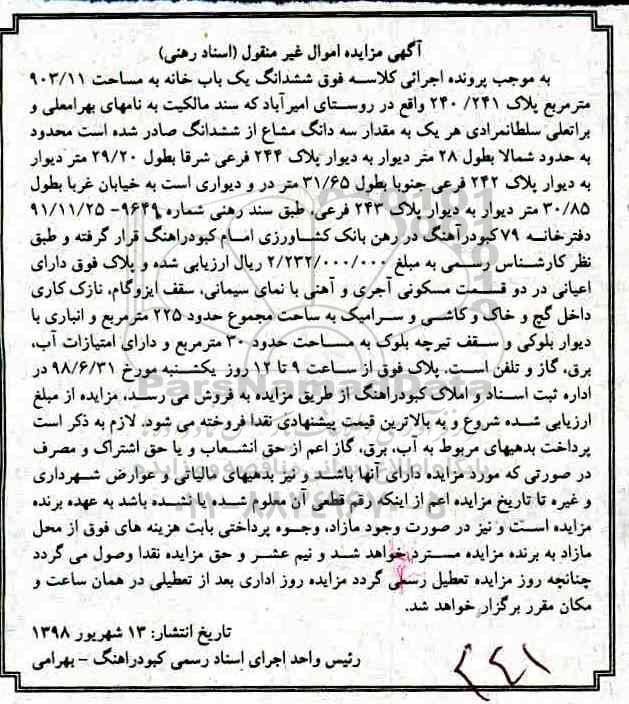 آگهی مزایده اموال غیر منقول (اسناد رهنی)
به موجب پرونده اجرائی کلاسه فوق ششدانگ یک باب خانه به مساحت ۹۰۳/۱۱
مترمربع پلاک ۲۴۱/ ۲۴۰ واقع در روستای امیرآباد که سند مالکیت به نامهای بهرامعلی و
براتعلی سلطانمرادی هر یک به مقدار سه دانگ مشاع از ششدانگ صادر شده است محدود
به حدود شمالا بطول ۲۸ متر دیوار به دیوار پلاک ۲۴۴ فرعی شرقا بطول ۲۹/۲۰ متر دیوار
به دیوار پلاک ۲۴۲ فرعی جنوبا بطول ۳۱/۶۵ متر در و دیواری است به خیابان غربا بطول
۳۰/۸۵ متر دیوار به دیوار پلاک ۲۴۳ فرعی، طبق سند رهنی شماره ۹۶۴۹- ۹۱/۱۱/۲۵
دفترخانه ۷۹ کبودرآهنگ در رهن بانک کشاورزی امام کبودراهنگ قرار گرفته و طبق
نظر کارشناس رسمی به مبلغ ۲/۲۳۲/۰۰۰/۰۰۰ ریال ارزیابی شده و پلاک فوق دارای
اعیانی در دو قسمت مسکونی آجری و آهنی با نمای سیمانی، سقف ایزوگام، نازک کاری
داخل گچ و خاک و کاشی و سرامیک به ساحت مجموع حدود ۲۲۵ مترمربع و انباری با
دیوار بلوکی و سقف تیرچه بلوک به مساحت حدود ۳۰ مترمربع و دارای امتیازات آب،
برق، گاز و تلفن است. پلاک فوق از ساعت ۹ تا ۱۲ روز یکشنبه مورخ ۹۸/۶/۳۱ در
اداره ثبت اسناد و املاک کبودراهنگ از طریق مزایده به فروش می رسد، مزایده از مبلغ
ارزیابی شده شروع و به بالاترین قیمت پیشنهادی نقدا فروخته می شود. لازم به ذکر است
پرداخت بدهیهای مربوط به آب، برق، گاز اعم از حق انشعاب و یا حق اشتراک و مصرف
در صورتی که مورد مزایده دارای آنها باشد و نیز بدهیهای مالیاتی و عوارض شهرداری
و غیره تا تاریخ مزایده اعم از اینکه رقم قطعی آن معلوم شده یا نشده باشد به عهده برنده
مزایده است و نیز در صورت وجود مازاد، وجوه پرداختی بابت هزینه های فوق از محل
مازاد به برنده مزایده مسترد خواهد شد و نیم عشر و حق مزایده نقدا وصول می گردد
چنانچه روز مزایده تعطیل رسمی گردد مزایده روز اداری بعد از تعطیلی در همان ساعت و
مکان مقرر برگزار خواهد شد.
تاریخ انتشار: ۱۳ شهریور ۱۳۹۸
رئیس واحد اجرای اسناد رسمی کبودراهنگ – بهرامی
ParsNamadData